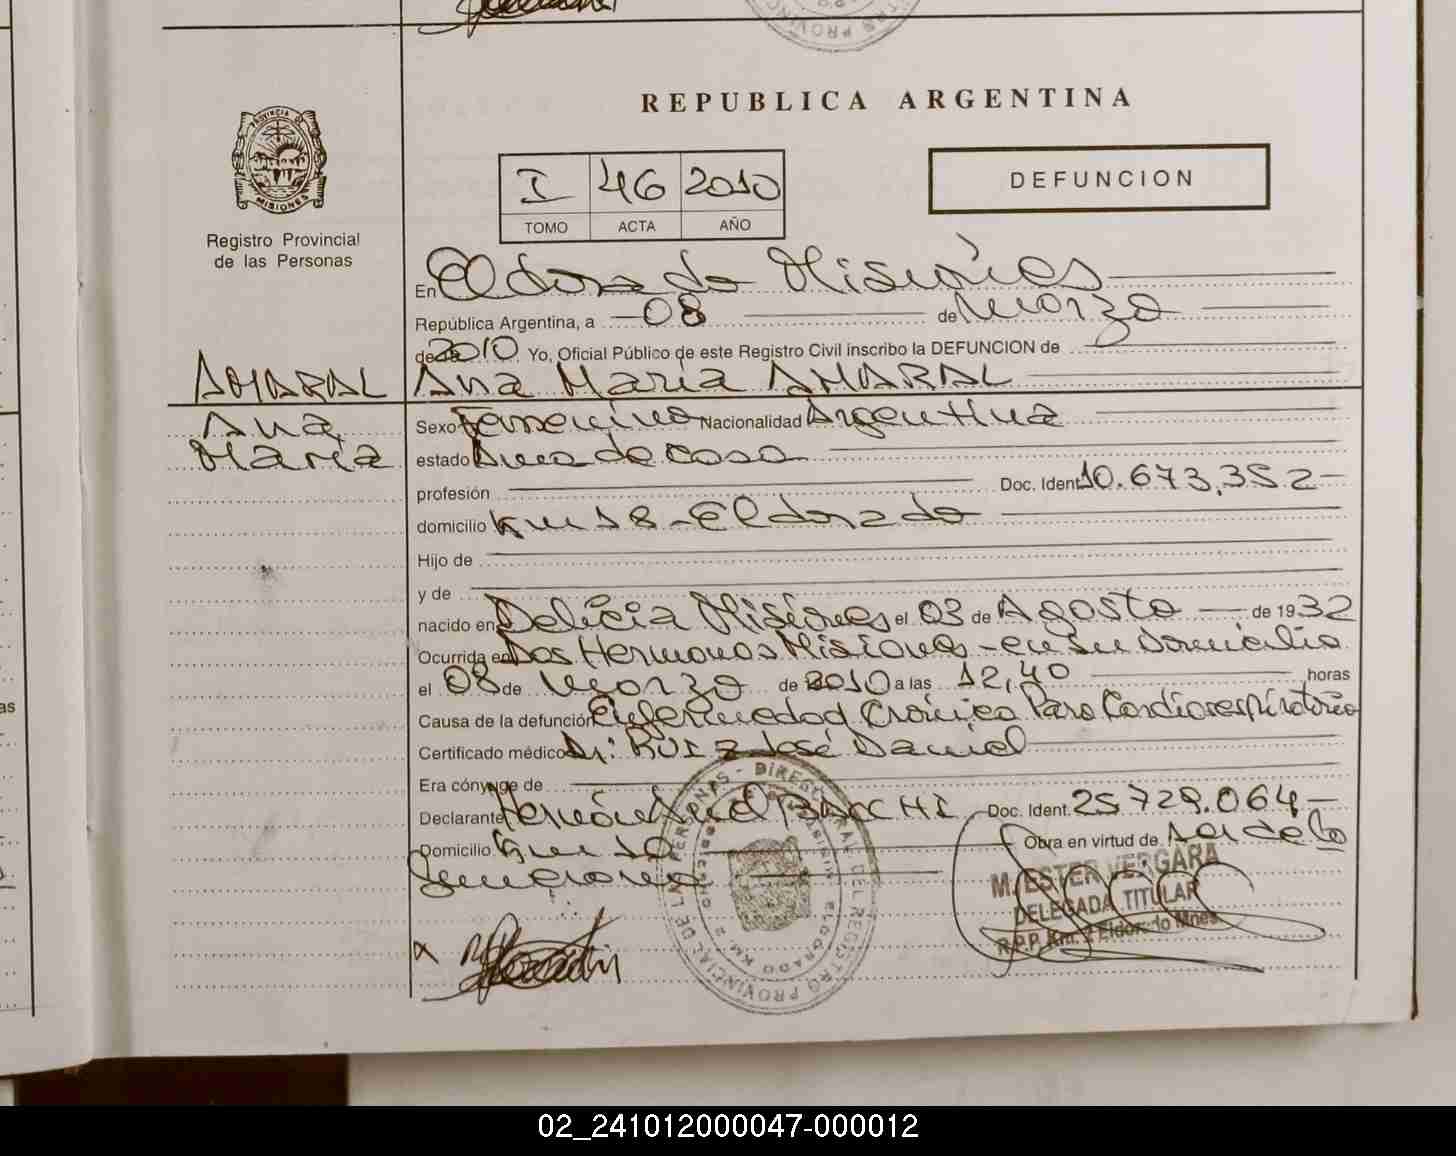 REPUBLICA ARGENTINA
PROVINCIA DE
MISIONES
Registro Provincial
de las Personas
I 46 2010
TOMO ACTA AÑO
DEFUNCION
En Eldorado Misiones
República Argentina, a 08 de Marzo
de 2010 Yo, Oficial Público de este Registro Civil inscribo la DEFUNCION de
AMARAL
Ana
María
Ana María AMARAL
Sexo Femenino Nacionalidad Argentina
estado Ama de casa
profesión Doc. Ident. 10.673.352
domicilio Km 18 - Eldorado
Hijo de
y de
nacido en Delicia Misiones el 03 de Agosto de 1932
Ocurrida en Dos Hermanas Misiones - en su Domicilio
el 08 de Marzo de 2010 a las 12,40 horas
Causa de la defunción Enfermedad Crónica Paro Cardiorespiratorio
Certificado médico Dr: RUIZ José Daniel
Era cónyuge de
Declarante Hernán BACCHI Doc. Ident. 25729.064
Domicilio Km 10 Obra en virtud de
M. ESTER VERGARA
DELEGADA TITULAR
R.P.P. Km. 2 Eldorado Mnes.
02_241012000047-000012